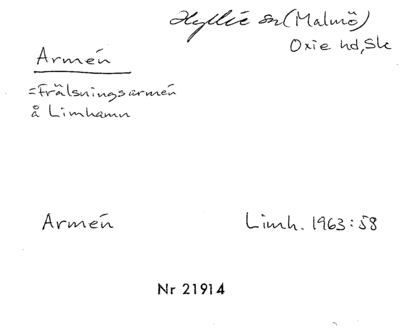 Hyllie sn (Malmö)
Oxie hd, Sk
Armén
=Frälsningsarmén
å Limhamn
Armén Limh. 1963:58
Nr 21914